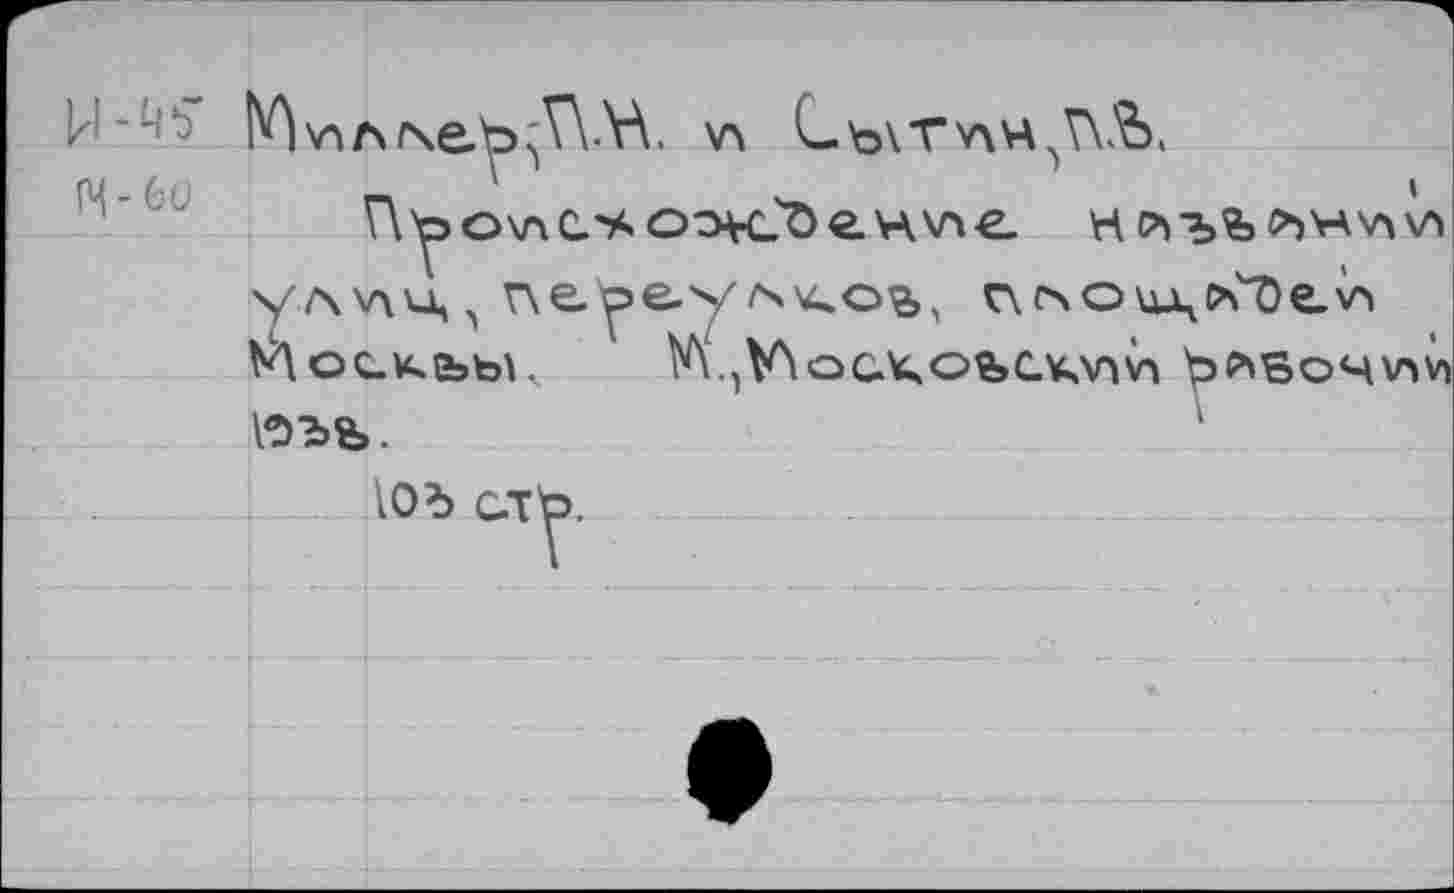 И-45 Миллер,П.Н. и Сытин,П.В.
М-60 Происхождение названий
улиц, переулков, площадей
Москвы. М.,Московский рабочий
193в.
103 стр.